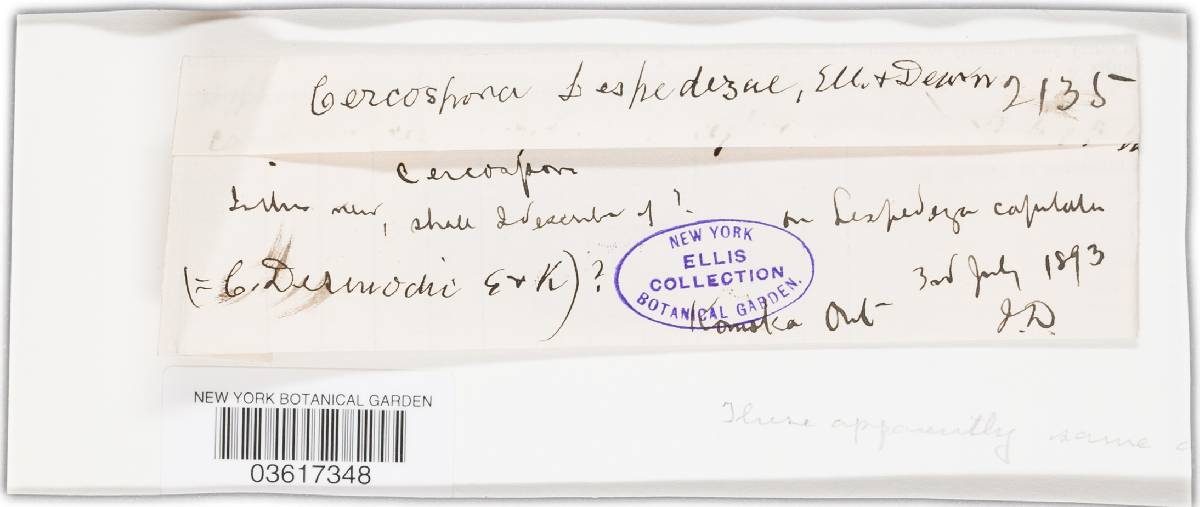 Cercospora Lespedezae, Ell. & Dearn 2135
Cercospora
Is this new, shall I describe it?
on Lespedeza capitata
(= C. Desmodii E & K) ?
3rd July 1893
Komoka Ont
J.D.
NEW YORK
ELLIS
COLLECTION
BOTANICAL GARDEN.
These apparently same
NEW YORK BOTANICAL GARDEN
03617348